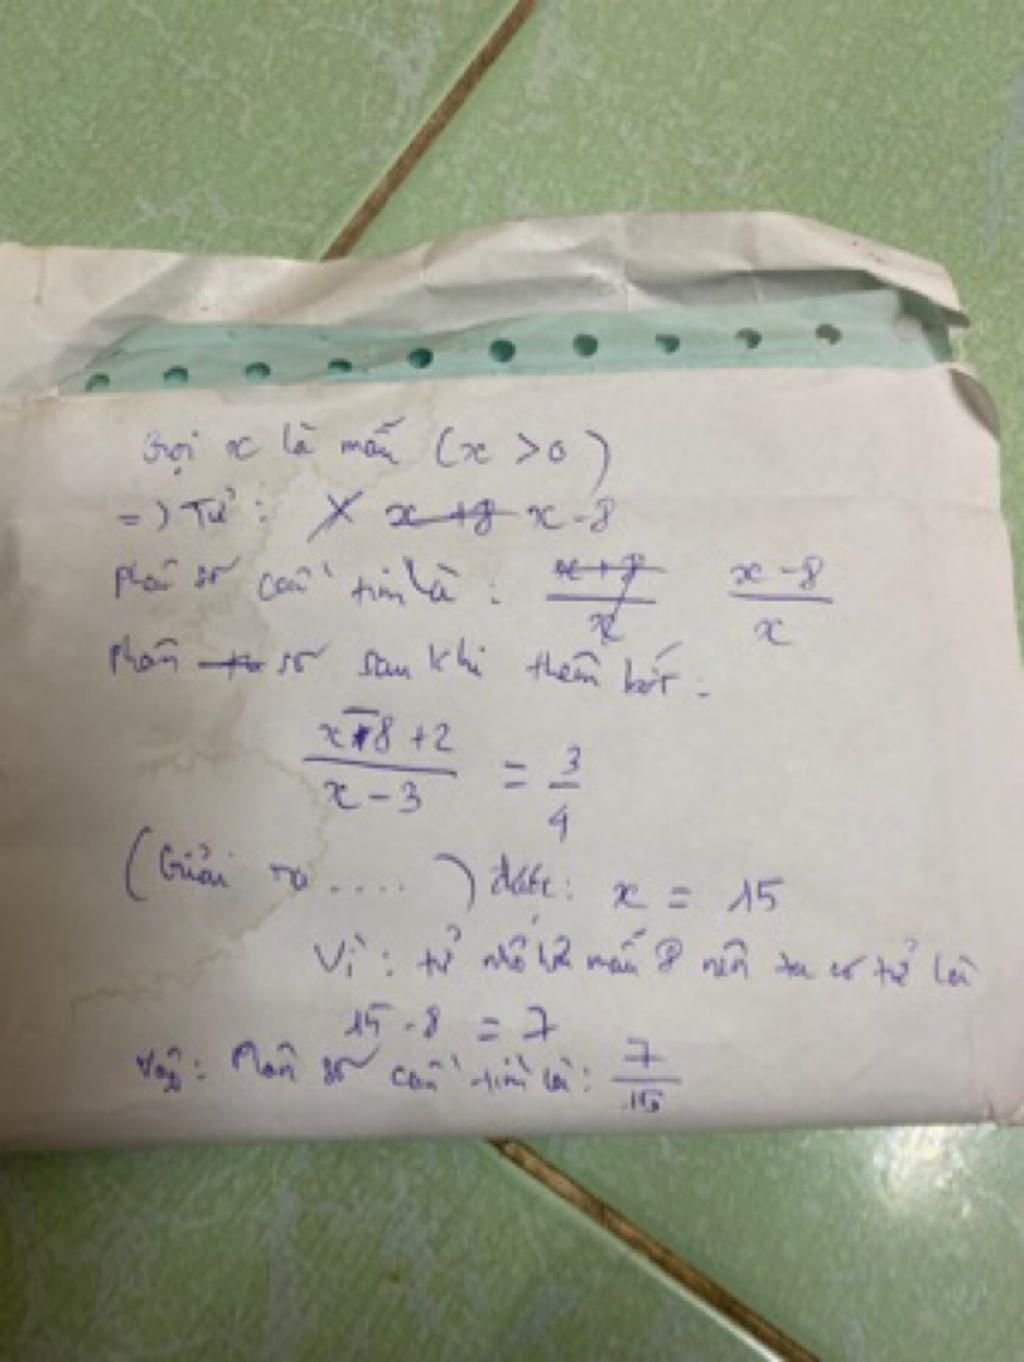 Gọi x là mẫu (x > 0)
=) Tử: x - 8
Phân số cần tìm là: x - 8 / x
Phân số sau khi thêm bớt:
x - 8 + 2 / x - 3 = 3 / 4
(Giải ra ....) được: x = 15
Vì: tử nhỏ hơn mẫu 8 nên ta có tử là
15 - 8 = 7
Vậy: Phân số cần tìm là: 7 / 15